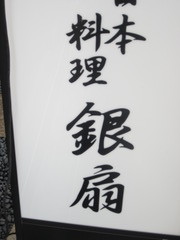 日本
料理
銀扇